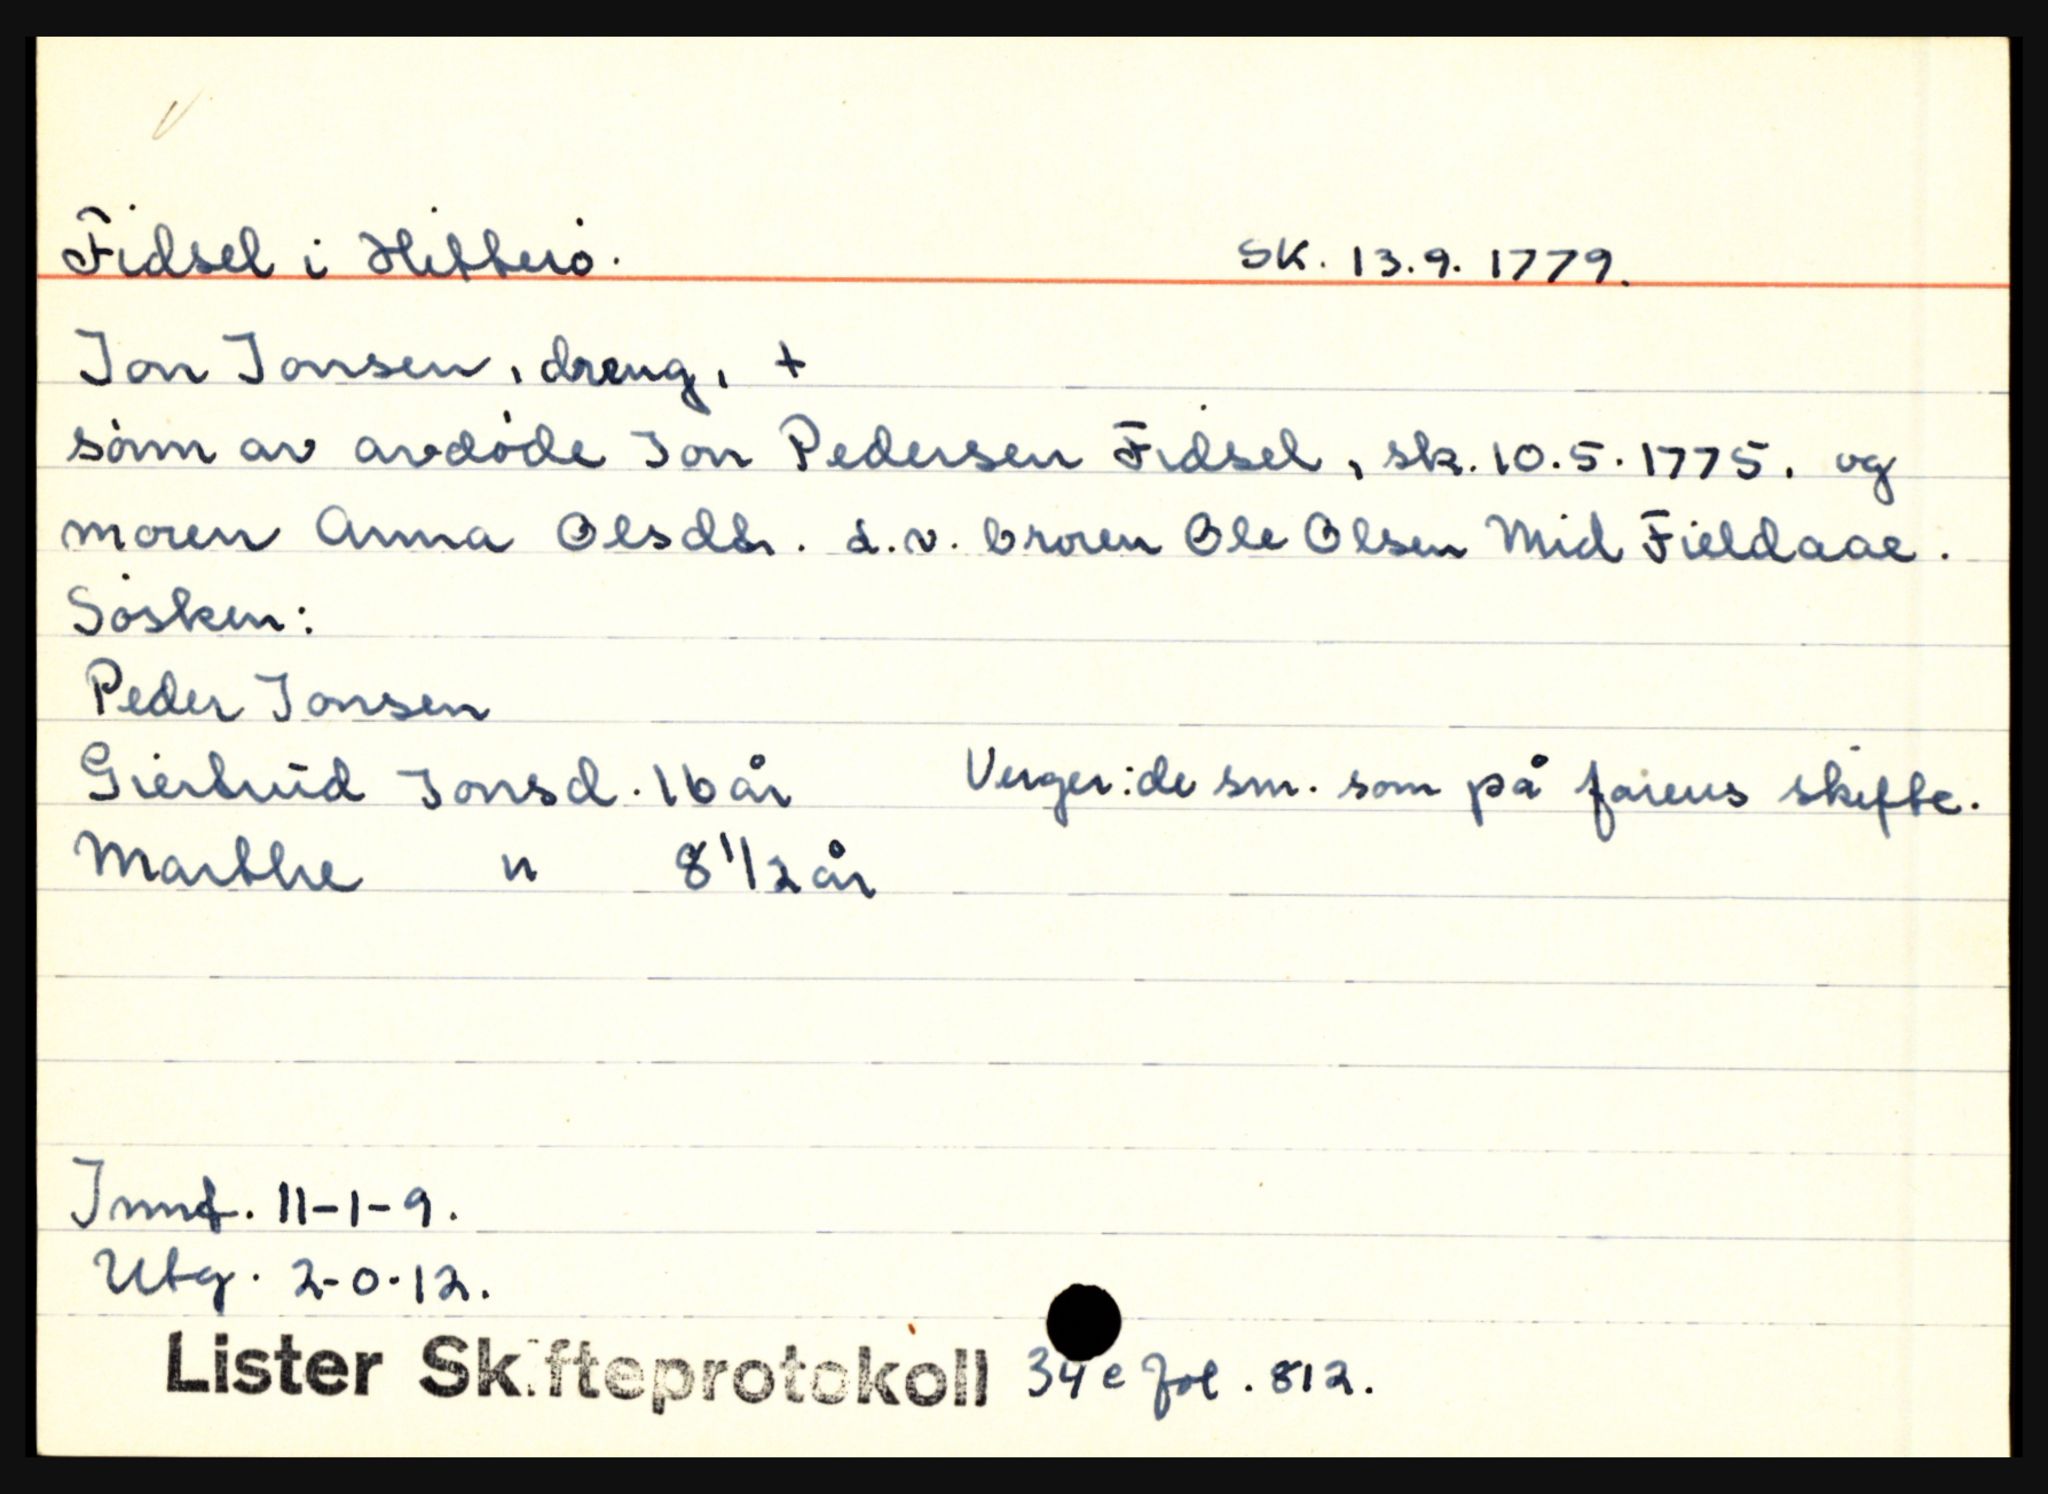 Fidsel i Hitterö. SK. 13.9.1779.
Jon Jonsen, dreng, +
sönn av avdöde Jon Pedersen Fidsel, sk. 10.5.1775. og
moren Anna Olsdtr. d.v. broren Ole Olsen Mid Fieldaae.
Sösken:
Peder Jonsen
Giertrud Jonsd. 16 år Verger: de sm. som på farens skifte.
Marthe " 8 1/2 år
Innt. 11-1-9.
Utg. 2-0-12.
Lister Skifteprotokoll 34 c fol. 812.